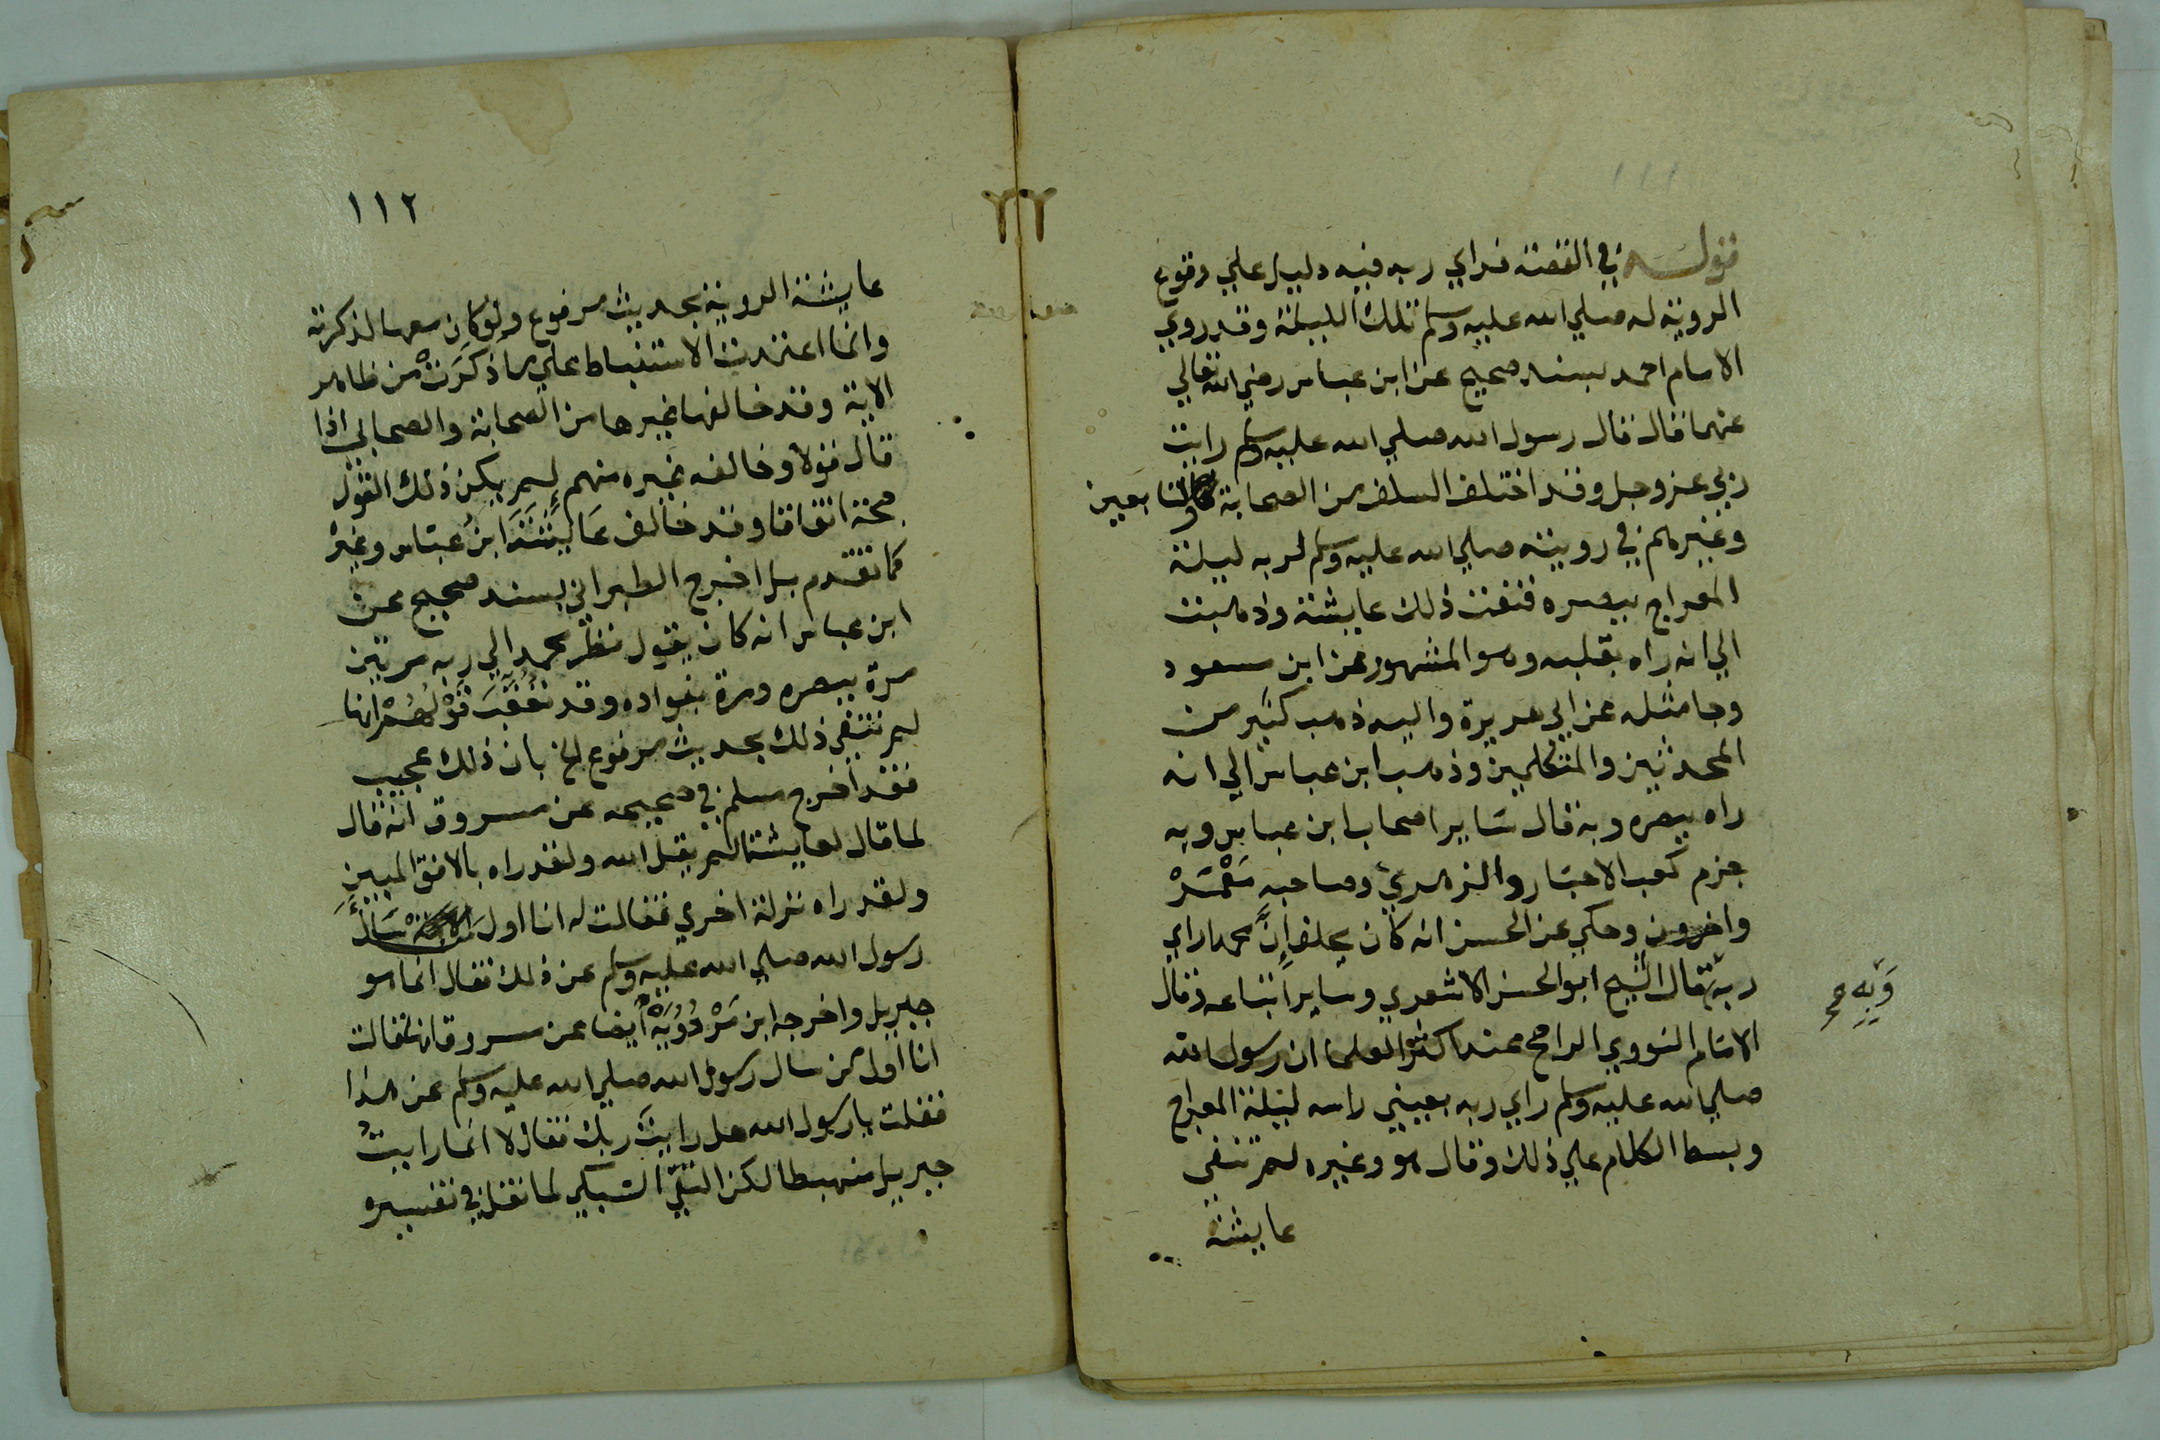 قوله في القصة فراي ربه فيه دليل علي وقوع
الروية له صلي الله عليه وسلم تلك الليلة وقد روي
الامام احمد بسند صحيح عن ابن عباس رضي الله تعالي
عنهما قال قال رسول الله صلي الله عليه وسلم رايت
ربي عز وجل وقد اختلف السلف من الصحابة والتابعين
وغيرهم في رويته صلي الله عليه وسلم لربه ليلة
المعراج ببصره فنفت ذلك عايشة وذهبت
الي انه راه بقلبه وهو المشهور عن ابن مسعود
وجا مثله عن ابي هريرة واليه ذهب كثير من
المحدثين والمتكلمين وذهب ابن عباس الي انه
راه ببصره وبه قال سَاير اصحاب ابن عباس وبه
جزم كعب الاحبَار والزهريُ وصاحبه مَعْمَرْ
واخرون وحكي عن الحسن انه كان يحلف إنَّ محمدا راي
ربه قال الشيخ ابو الحسن الاشعري وساير اتباعه وقال
وَبِهِ صح
الامَام النووي الراجح عند اكثر العلما ان رسول الله
صلي الله عليه وسلم راي ربه بعيني راسه ليلة المعراج
وبسط الكلام علي ذلك وقال هو وغيره لم تنفي
عايشة
١١٢
عايشة الروية بحديث مرفوع ولو كان معها لذكرته
وانما اعتمدت الاستنباط علي ما ذكَرَتْ من ظاهر
الاية وقد خالفها غيرها من الصحابة والصحابي اذا
قال قولا وخالفه غيره منهم لم يكن ذلك القول
حجة اتفاقا وقد خالف عَايشَةَ ابنُ عبّاس وغيرُ
كما تقدم بل اخرج الطبراني بسند صحيح عن
ابن عباس انه كان يقول نظر محمد الي ربه مرتين
مرة ببصره ومرة بفواده وقد تُعُقِّبَ قَوْلهُمْ انها
لم تنفي ذلك بحديث مرفوع الخ بان ذلك عجيب
فقد اخرج مسلم في صحيحه عن مسروق انه قال
لما قال لعايشة الم يقل الله ولقد راه بالافق المبين
ولقد راه نزلة اخري فقالت له انا اول هذه الامة سَأَلَ
رسول الله صلي الله عليه وسلم عن ذلك فقال انما هو
جبريل واخرجه ابن مَرْدُوْيَهْ ايضا عن مسروق انها قالت
انا اول من سال رسول الله صلي الله عليه وسلم عن هذا
فقلت يا رسول الله هل رايتَ ربك فقال لا انما رايتُ
جبريل منهبطا لكن التقيّ السبكي لما نقل في تفسيره